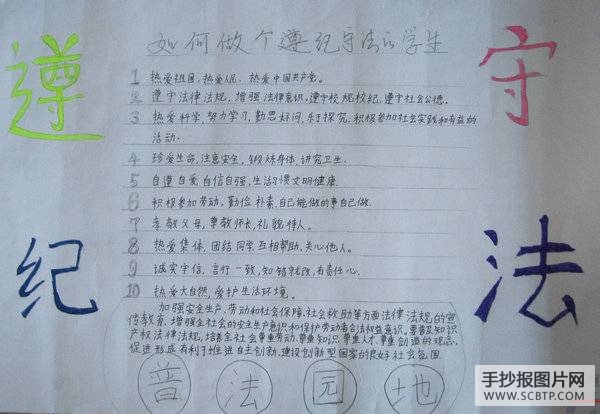 如何做个遵纪守法的学生
遵
守
纪
法
1 热爱祖国,热爱人民,热爱中国共产党。
2 遵守法律法规,增强法律意识。遵守校规校纪,遵守社会公德。
3 热爱科学,努力学习,勤思好问,乐于探究,积极参加社会实践和有益的
活动.
4 珍爱生命,注意安全,锻炼身体,讲究卫生.
5 自尊自爱,自信自强,生活习惯文明健康.
6 积极参加劳动,勤俭朴素,自己能做的事自己做.
7 孝敬父母,尊敬师长,礼貌待人。
8 热爱集体,团结同学,互相帮助,关心他人。
9 诚实守信,言行一致,知错就改,有责任心.
10 热爱大自然,爱护生活环境。
加强安全生产,劳动和社会保障,社会救助等方面法律法规的宣
传教育,增强全社会的安全生产意识和保护劳动者合法权益意识,要普及知识
产权法律法规,培养全社会尊重劳动,尊重知识,尊重人才,尊重创造的观念,
促进形成有利于推进自主创新,建设创新型国家的良好社会氛围
普法园地
手抄报图片网
WWW.SCBTP.COM